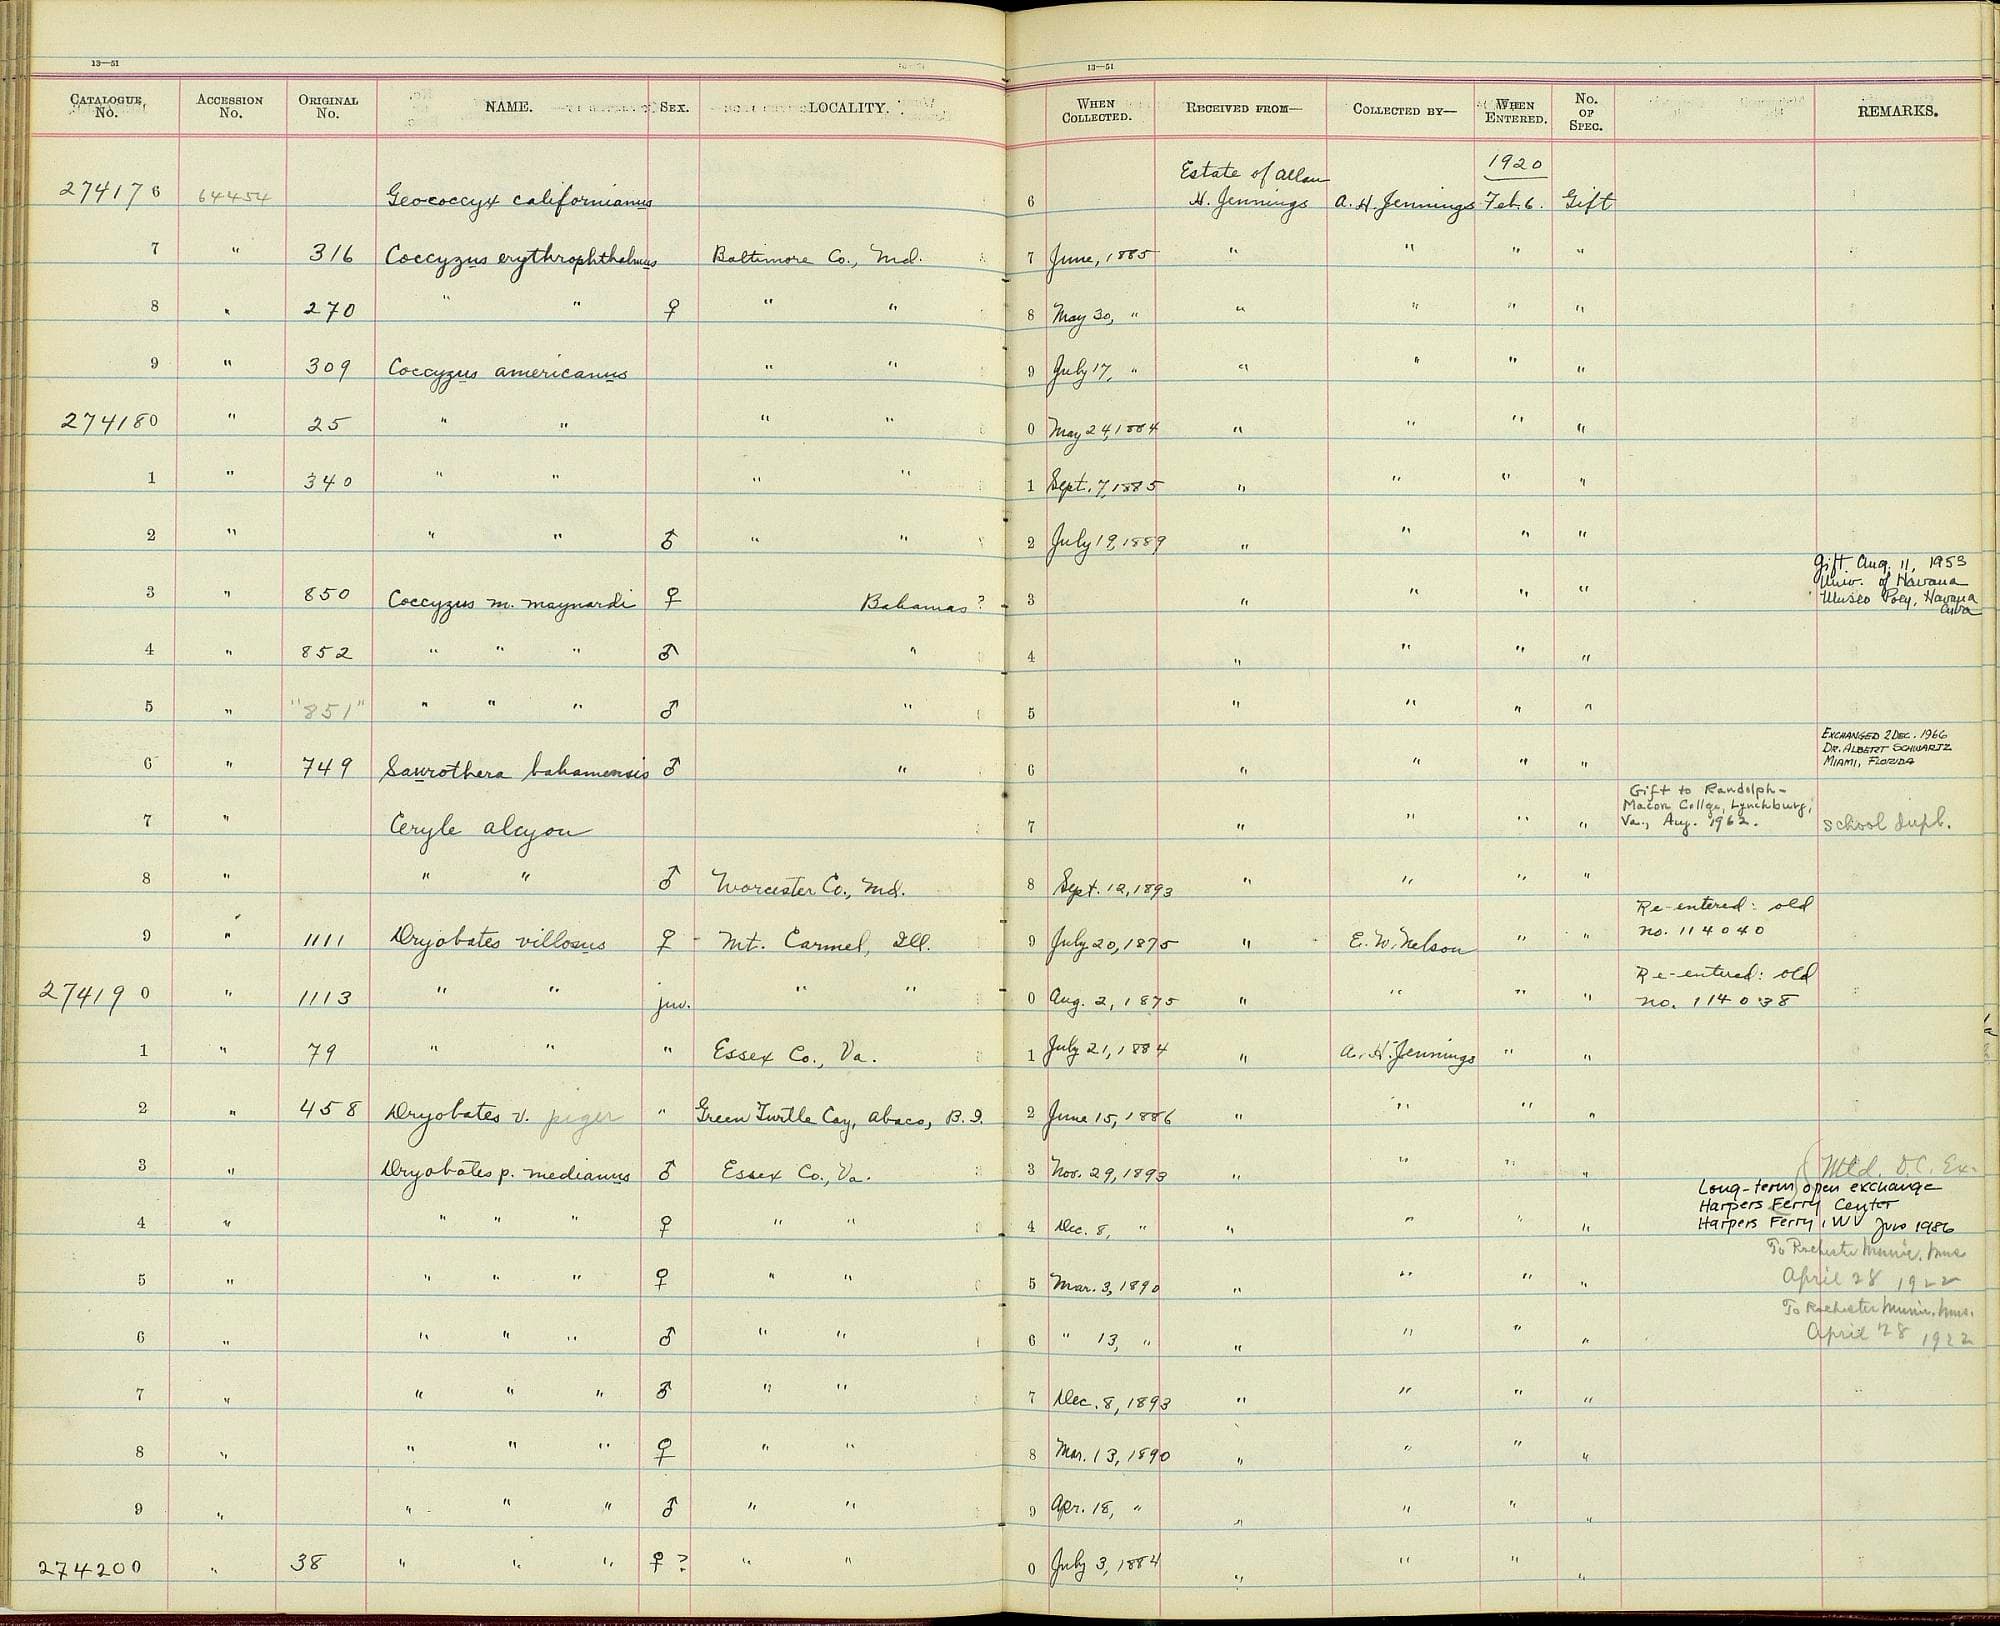 13—51
CATALOGUE No. ACCESSION No. ORIGINAL No. NAME. SEX. LOCALITY.
274176 64454 Geococcyx californianus
7 " 316 Coccyzus erythrophthalmus Baltimore Co., Md.
8 " 270 " " ♀ " "
9 " 309 Coccyzus americanus " "
274180 " 25 " " " "
1 " 340 " " " "
2 " " " ♂ " "
3 " 850 Coccyzus m. maynardi ♀ Bahamas?
4 " 852 " " " ♂ "
5 " "851" " " " ♂ "
6 " 749 Saurothera bahamensis ♂ "
7 " Ceryle alcyon
8 " " " ♂ Worcester Co., Md.
9 " 1111 Dryobates villosus ♀ Mt. Carmel, Ill.
274190 " 1113 " " juv. " "
1 " 79 " " " Essex Co., Va.
2 " 458 Dryobates v. piger " Green Turtle Cay, Abaco, B.I.
3 " Dryobates p. medianus ♂ Essex Co., Va.
4 " " " " ♀ " "
5 " " " " ♀ " "
6 " " " " ♂ " "
7 " " " " ♂ " "
8 " " " " ♀ " "
9 " " " " ♂ " "
274200 " 38 " " " ♀? " "
13—51
WHEN COLLECTED. RECEIVED FROM— COLLECTED BY— WHEN ENTERED. No. OF SPEC. REMARKS.
1920
Estate of Allan
6 H. Jennings A. H. Jennings Feb. 6. Gift
7 June, 1885 " " " "
8 May 30, " " " " "
9 July 17, " " " " "
0 May 24, 1884 " " " "
1 Sept. 7, 1885 " " " "
2 July 19, 1889 " " " "
Gift Aug. 11, 1953
Univ. of Havana
3 " " " " Museo Poey, Havana
Cuba
4 " " " "
5 " " " "
EXCHANGED 2 DEC. 1966
DR. ALBERT SCHWARTZ
6 " " " " MIAMI, FLORIDA
Gift to Randolph-
Macon Collge, Lynchburg,
7 " " " " Va., Aug. 1962. school dupl.
8 Sept. 12, 1893 " " " "
Re-entered: old
9 July 20, 1875 " E. W. Nelson " " no. 114040
Re-entered: old
0 Aug. 2, 1875 " " " " no. 114038
1 July 21, 1884 " A. H. Jennings " "
2 June 15, 1886 " " " "
3 Nov. 29, 1893 " " " " Mtd. D.C. Ex.
Long-term open exchange
Harpers Ferry Center
4 Dec. 8, " " " " " Harpers Ferry, WV 1986
To Rochester Munic. Mus
5 Mar. 3, 1890 " " " " April 28 1922
To Rochester Munic. Mus.
6 " 13, " " " " " April 28 1922
7 Dec. 8, 1893 " " " "
8 Mar. 13, 1890 " " " "
9 Apr. 18, " " " " "
0 July 3, 1884 " " " "